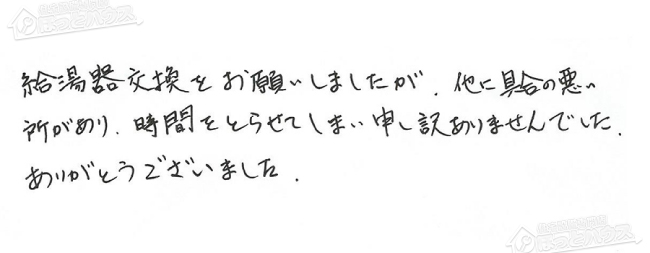 給湯器交換をお願いしましたが、他に具合の悪い
所があり、時間をとらせてしまい申し訳ありませんでした。
ありがとうございました。